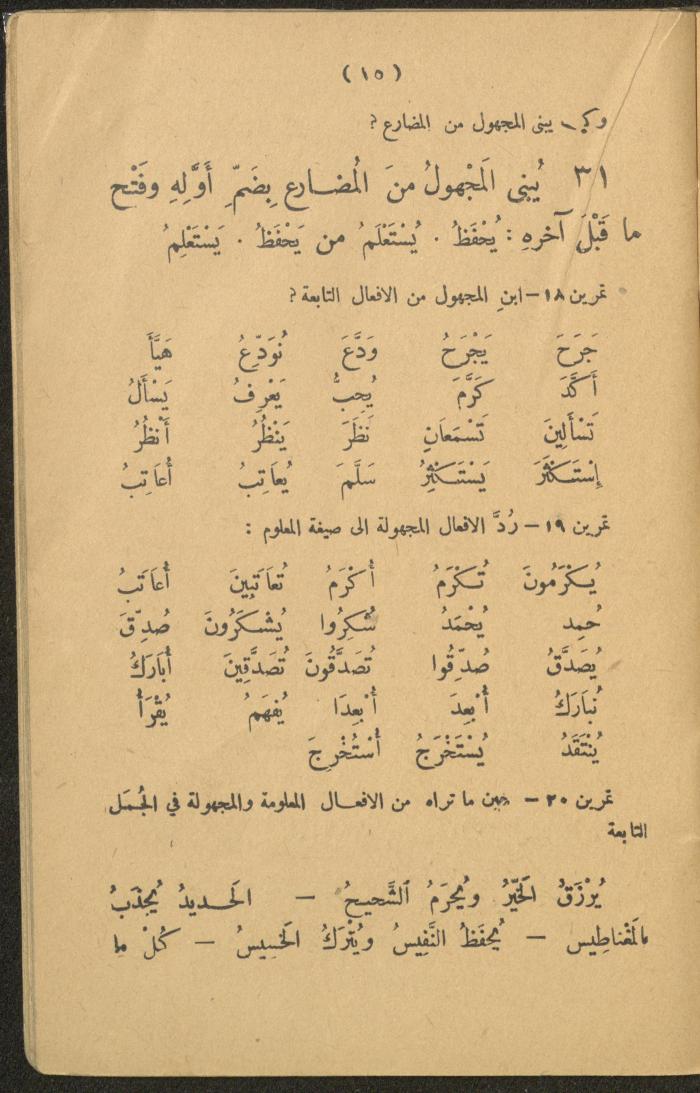 (١٥)
وكيف يبنى المجهول من المضارع ؟
٣١ يُبنى المَجْهولُ منَ المُضارع بِضَمِّ أَوَّلِهِ وفَتْح
ما قَبْلَ آخرهِ : يُحْفَظُ . يُسْتَعْلَمُ من يَحْفَظُ . يَسْتَعْلِمُ
تمرين ١٨ – ابنِ المجهول من الافعال التابعة ؟
جَرَحَ يَجْرَحُ وَدَّعَ نُوَدِّعُ هَيَّأَ
أَكَّدَ كَرَّمَ يُحِبُّ يَعْرِفُ يَسْأَلُ
تَسْأَلِينَ تَسْمَعَانِ نَظَرَ يَنْظُرُ أَنْظُرُ
إِسْتَكْثَرَ يَسْتَكْثِرُ سَلَّمَ يُعَاتِبُ أُعَاتِبُ
تمرين ١٩ – رُدَّ الافعال المجهولة الى صيغة المعلوم :
يُكْرَمُونَ تُكْرَمُ أُكْرَمُ تُعَاتَبِينَ أُعَاتَبُ
حُمِد يُحْمَدُ شُكِرُوا يُشْكَرُونَ صُدِّقَ
يُصَدَّقُ صُدِّقُوا تُصَدَّقُونَ تُصَدَّقِينَ أُبَارَكُ
نُبَارَكُ أُبْعِدَ أُبْعِدَا يُفهَمُ يُقْرَأُ
يُنْتَقَدُ يُسْتَخْرَجُ أُسْتُخْرِجَ
تمرين ٢٠ – ما تراه من الافعال المعلومة والمجهولة في الجُمَل
التابعة
يُرْزَقُ الخَيِّرُ ويُحرَمُ الشَّحيحُ – الحَديدُ يُجذَبُ
بالمَغْناطِيس – يُحفَظُ النَّفِيسُ ويُتْرَكُ الخَسِيسُ – كُلْ ما